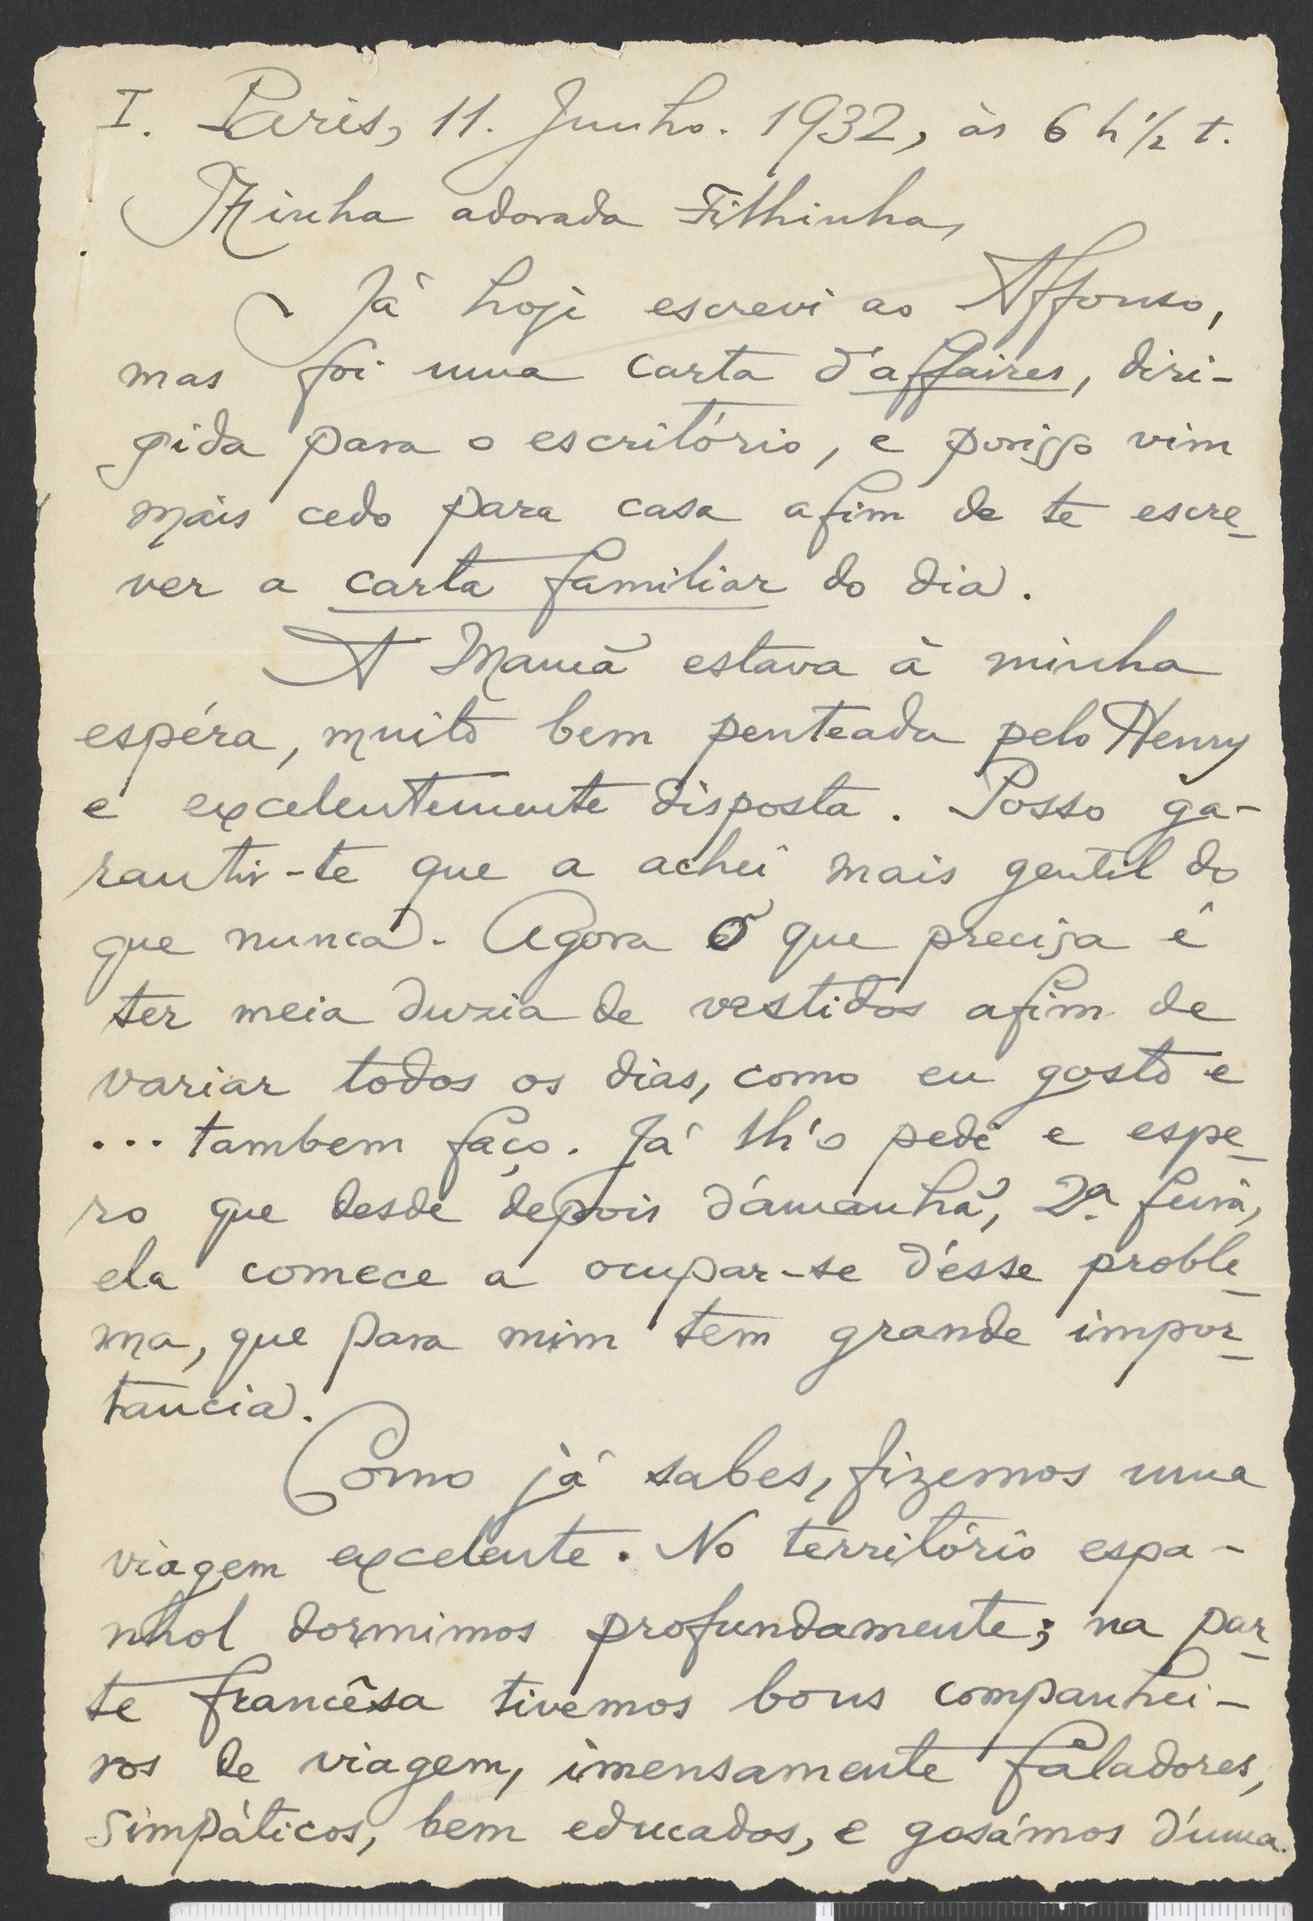 I. Paris, 11. Junho. 1932, às 6 h ½ t.
Minha adorada Filhinha,
Já hoje escrevi ao Affonso,
mas foi uma carta d'affaires, diri-
gida para o escritório, e porisso vim
mais cedo para casa afim de te escre-
ver a carta familiar do dia.
A Mamã estava à minha
espéra, muito bem penteada pelo Henry
e excelentemente disposta. Posso ga-
rantir-te que a achei mais gentil do
que nunca. Agora o que precisa é
ter meia duzia de vestidos afim de
variar todos os dias, como eu gosto e
... tambem faço. Já lh'o pedi e espe-
ro que desde depois d'ámanhã, 2ª feira,
ela comece a ocupar-se d'ésse proble-
ma, que para mim tem grande impor-
tancia.
Como já sabes, fizemos uma
viagem excelente. No território espa-
nhol dormimos profundamente; na par-
te francêsa tivemos bons companhei-
ros de viagem, imensamente faladores,
simpáticos, bem educados, e gosámos d'uma